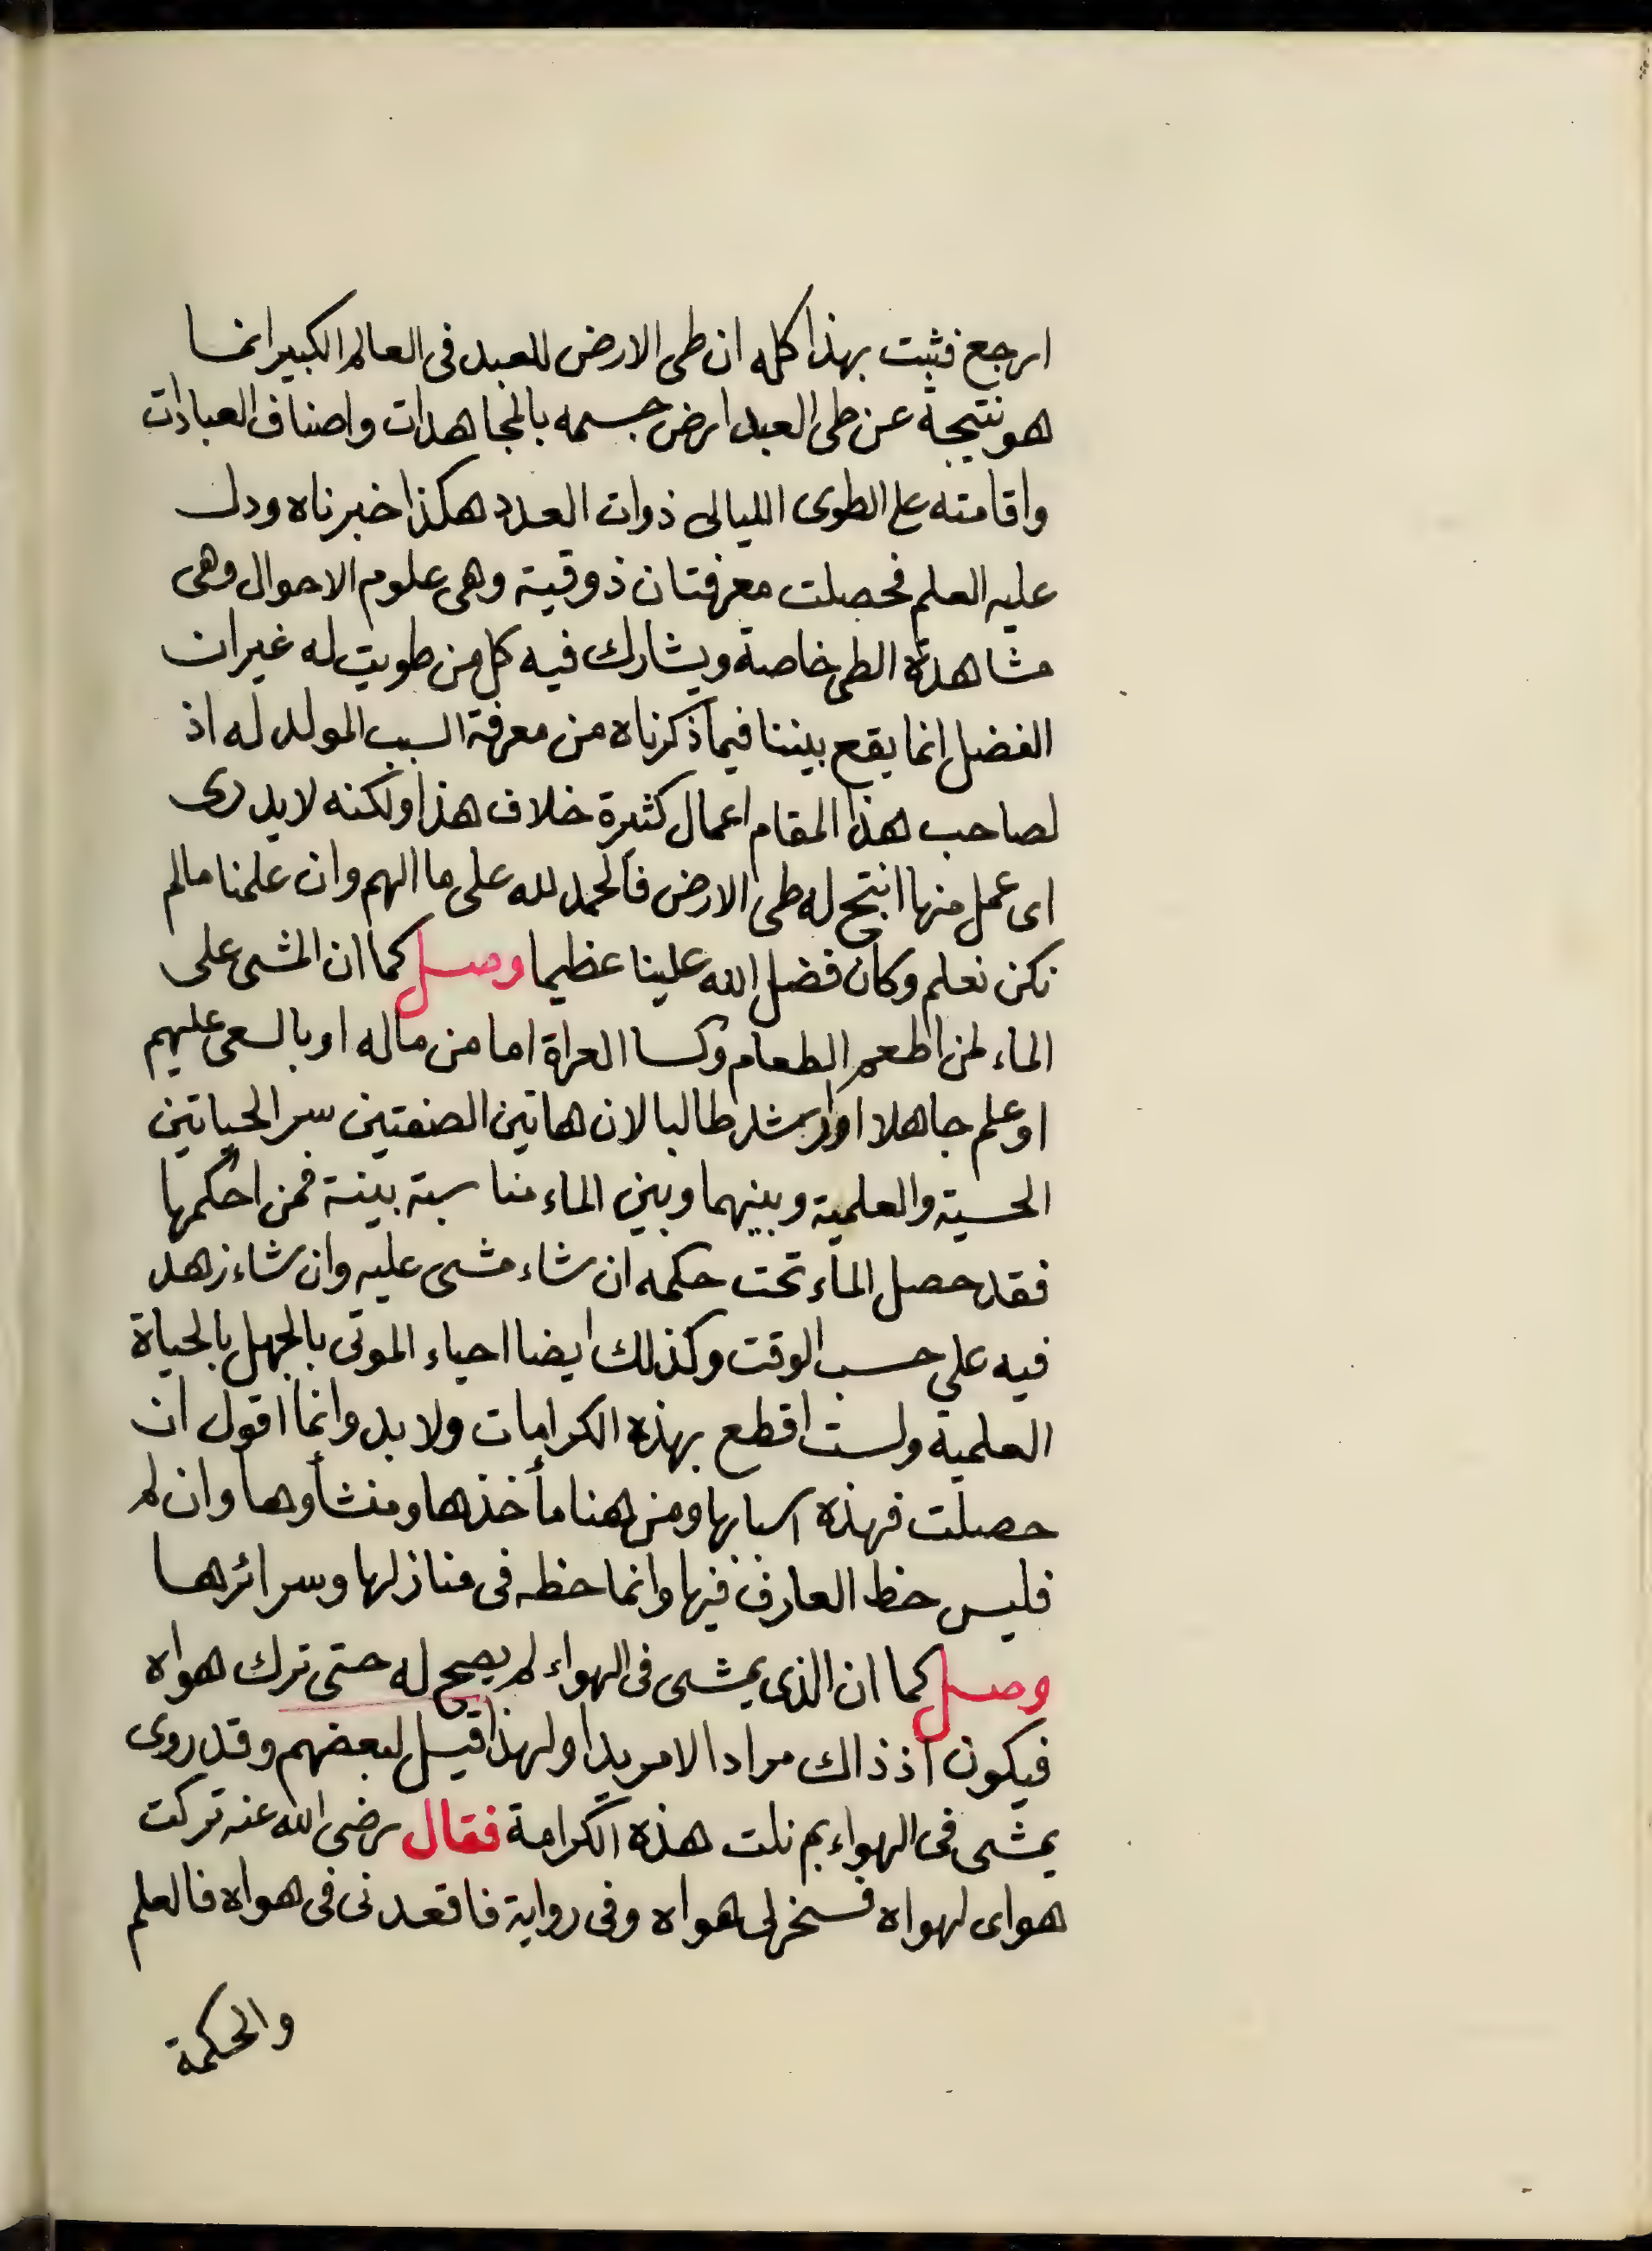 ارجع فثبت بهذا كله ان طى الارض للعبد فى العالم الكبير انما
هو نتيجة عن طى العبد ارض جسمه بالمجاهدات واصناف العبادات
واقامته على الطوى الليالى ذوات العدد هكذا خبرناه ودل
عليه العلم فحصلت معرفتان ذوقية وهى علوم الاحوال وهى
مشاهدة الطى خاصة ويشارك فيه كل من طويت له غير ان
الفضل انما يقع بيننا فيما ذكرناه من معرفة السبب المولد له اذ
لصاحب هذا المقام اعمال كثيرة خلاف هذا ولكنه لا يدرى
اى عمل منها انتج له طى الارض فالحمد لله على ما الهم وان علمنا مالم
نكن نعلم وكان فضل الله علينا عظيما وصل كما ان المشى على
الماء لمن اطعم الطعام وكسا العراة اما من ماله او بالسعى عليهم
او علم جاهلا او ارشد طالبا لان هاتين الصفتين سر الحياتين
الحسية والعلمية وبينهما وبين الماء مناسبة بينة فمن احكمها
فقد حصل الماء تحت حكمه ان شاء مشى عليه وان شاء زهد
فيه على حسب الوقت وكذلك ايضا احياء الموتى بالجهل بالحياة
العلمية ولست اقطع بهذه الكرامات ولا بد وانما اقول ان
حصلت فهذه اسبابها ومن هنا مأخذها ومنشأوها وان لم
فليس حظ العارف فيها وانما حظه فى منازلها وسرائرها
وصل كما ان الذى يمشى فى الهواء لم يصح له حتى ترك هواه
فيكون اذ ذاك مرادا لا مريدا ولهذا قيل لبعضهم وقد روى
يمشى فى الهواء بم نلت هذه الكرامة فقال رضى الله عنه تركت
هواى لهواه فسخر لى هواه وفى رواية فاقعدنى فى هواه فالعلم
والحكمة